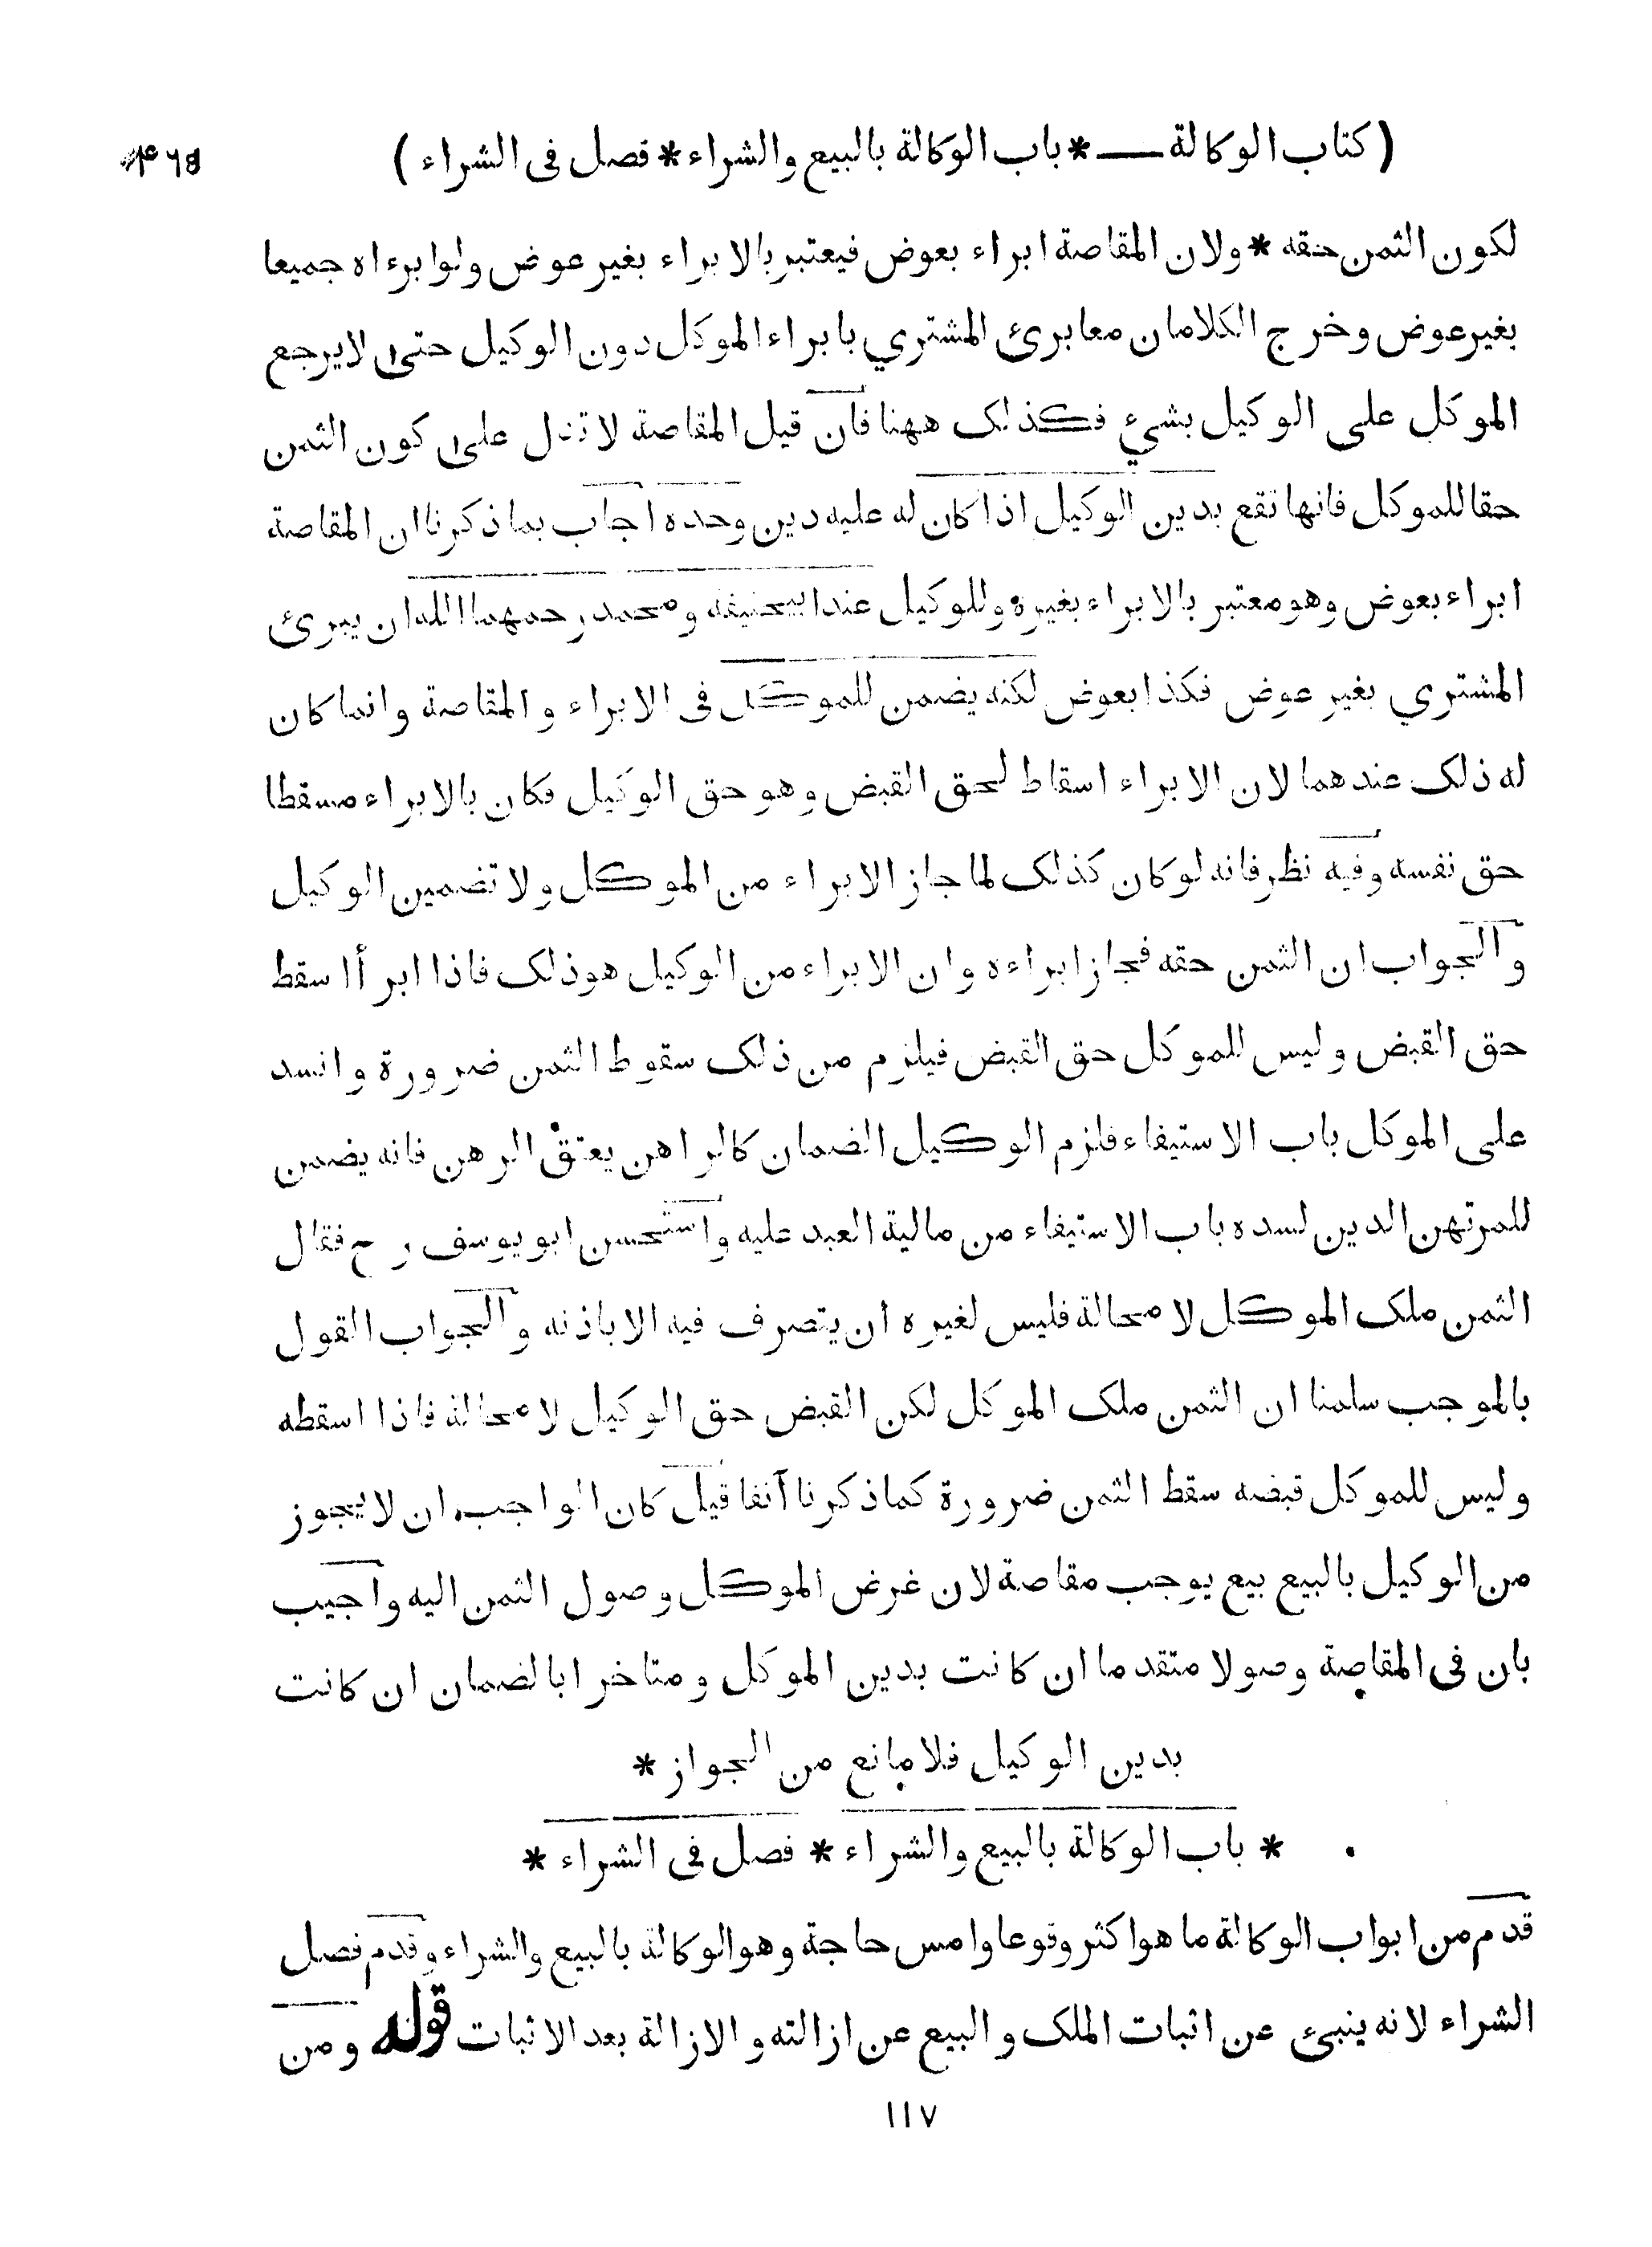 ( كتاب الوكالة ـــ * باب الوكالة بالبيع والشراء * فصل فى الشراء )
لكون الثمن حقه * ولان المقاصة ابراء بعوض فيعتبر بالابراء بغير عوض ولوابرءاه جميعا
بغيرعوض وخرج الكلامان معا برئ المشتري بابراء الموكل دون الوكيل حتى لايرجع
الموكل على الوكيل بشيء فكذلك ههنا فان قيل المقاصة لا تدل على كون الثمن
حقا للموكل فانها تقع بدين الوكيل اذا كان له عليه دين وحده اجاب بما ذكرنا ان المقاصة
ابراء بعوض وهو معتبر بالابراء بغيره وللوكيل عندابيحنيفه ومحمد رحمهما الله ان يبرئ
المشتري بغير عوض فكذا بعوض لكنه يضمن للموكل فى الابراء والمقاصة وانما كان
له ذلك عندهما لان الابراء اسقاط لحق القبض وهو حق الوكيل فكان بالابراء مسقطا
حق نفسه وفيه نظر فانه لوكان كذلك لما جاز الابراء من الموكل ولا تضمين الوكيل
والجواب ان الثمن حقه فجاز ابراءه وان الابراء من الوكيل هوذلك فاذا ابرأ اسقط
حق القبض وليس للموكل حق القبض فيلزم من ذلك سقوط الثمن ضرورة وانسد
على الموكل باب الاستيفاء فلزم الوكيل الضمان كالراهن يعتق الرهن فانه يضمن
للمرتهن الدين لسده باب الاستيفاء من مالية العبد عليه واستحسن ابويوسف رح فقال
الثمن ملك الموكل لا محالة فليس لغيره ان يتصرف فيه الا باذنه والجواب القول
بالموجب سلمنا ان الثمن ملك الموكل لكن القبض حق الوكيل لا محالة فاذا اسقطه
وليس للموكل قبضه سقط الثمن ضرورة كما ذكرنا آنفا قيل كان الواجب ان لا يجوز
من الوكيل بالبيع بيع يوجب مقاصة لان غرض الموكل وصول الثمن اليه واجيب
بان فى المقاصة وصولا متقدما ان كانت بدين الموكل ومتاخرا بالضمان ان كانت
بدين الوكيل فلا مانع من الجواز *
* باب الوكالة بالبيع والشراء * فصل فى الشراء *
قدم من ابواب الوكالة ما هو اكثر وقوعا وامس حاجة وهو الوكالة بالبيع والشراء وقدم فصل
الشراء لانه ينبىء عن اثبات الملك والبيع عن ازالته والازالة بعد الاثبات قوله ومن
١١٧